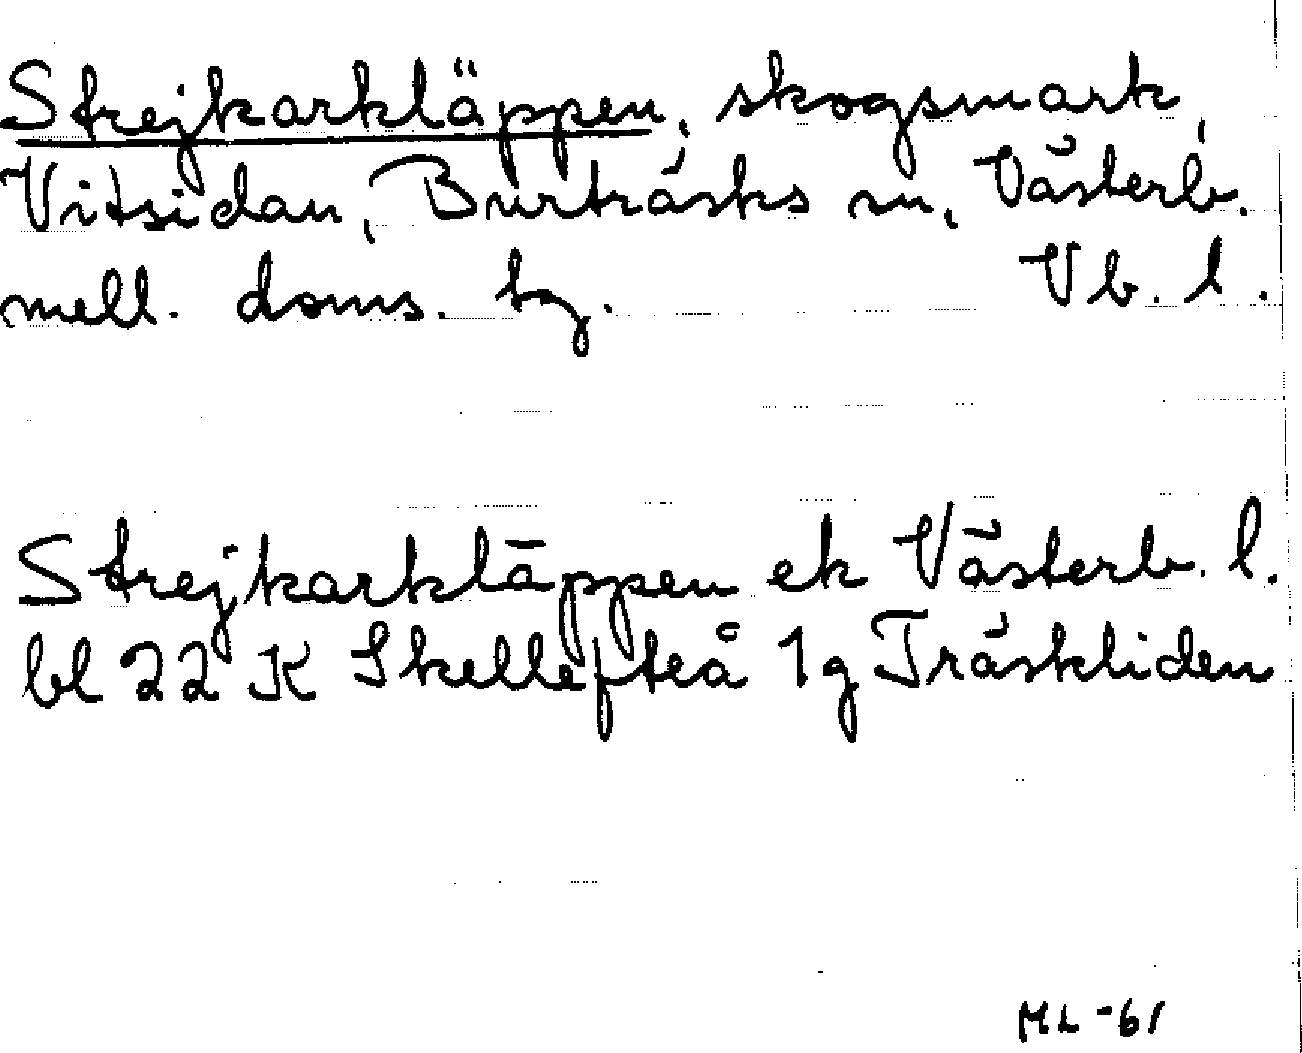 Strejkarkläppen, skogsmark,
Vitsidan, Burträsks sn, Västerb.
mell. doms. tg. Vb. l.
Strejkarkläppen ek Västerb. l.
bl 22 K Skellefteå 1g Träskliden
ML -61